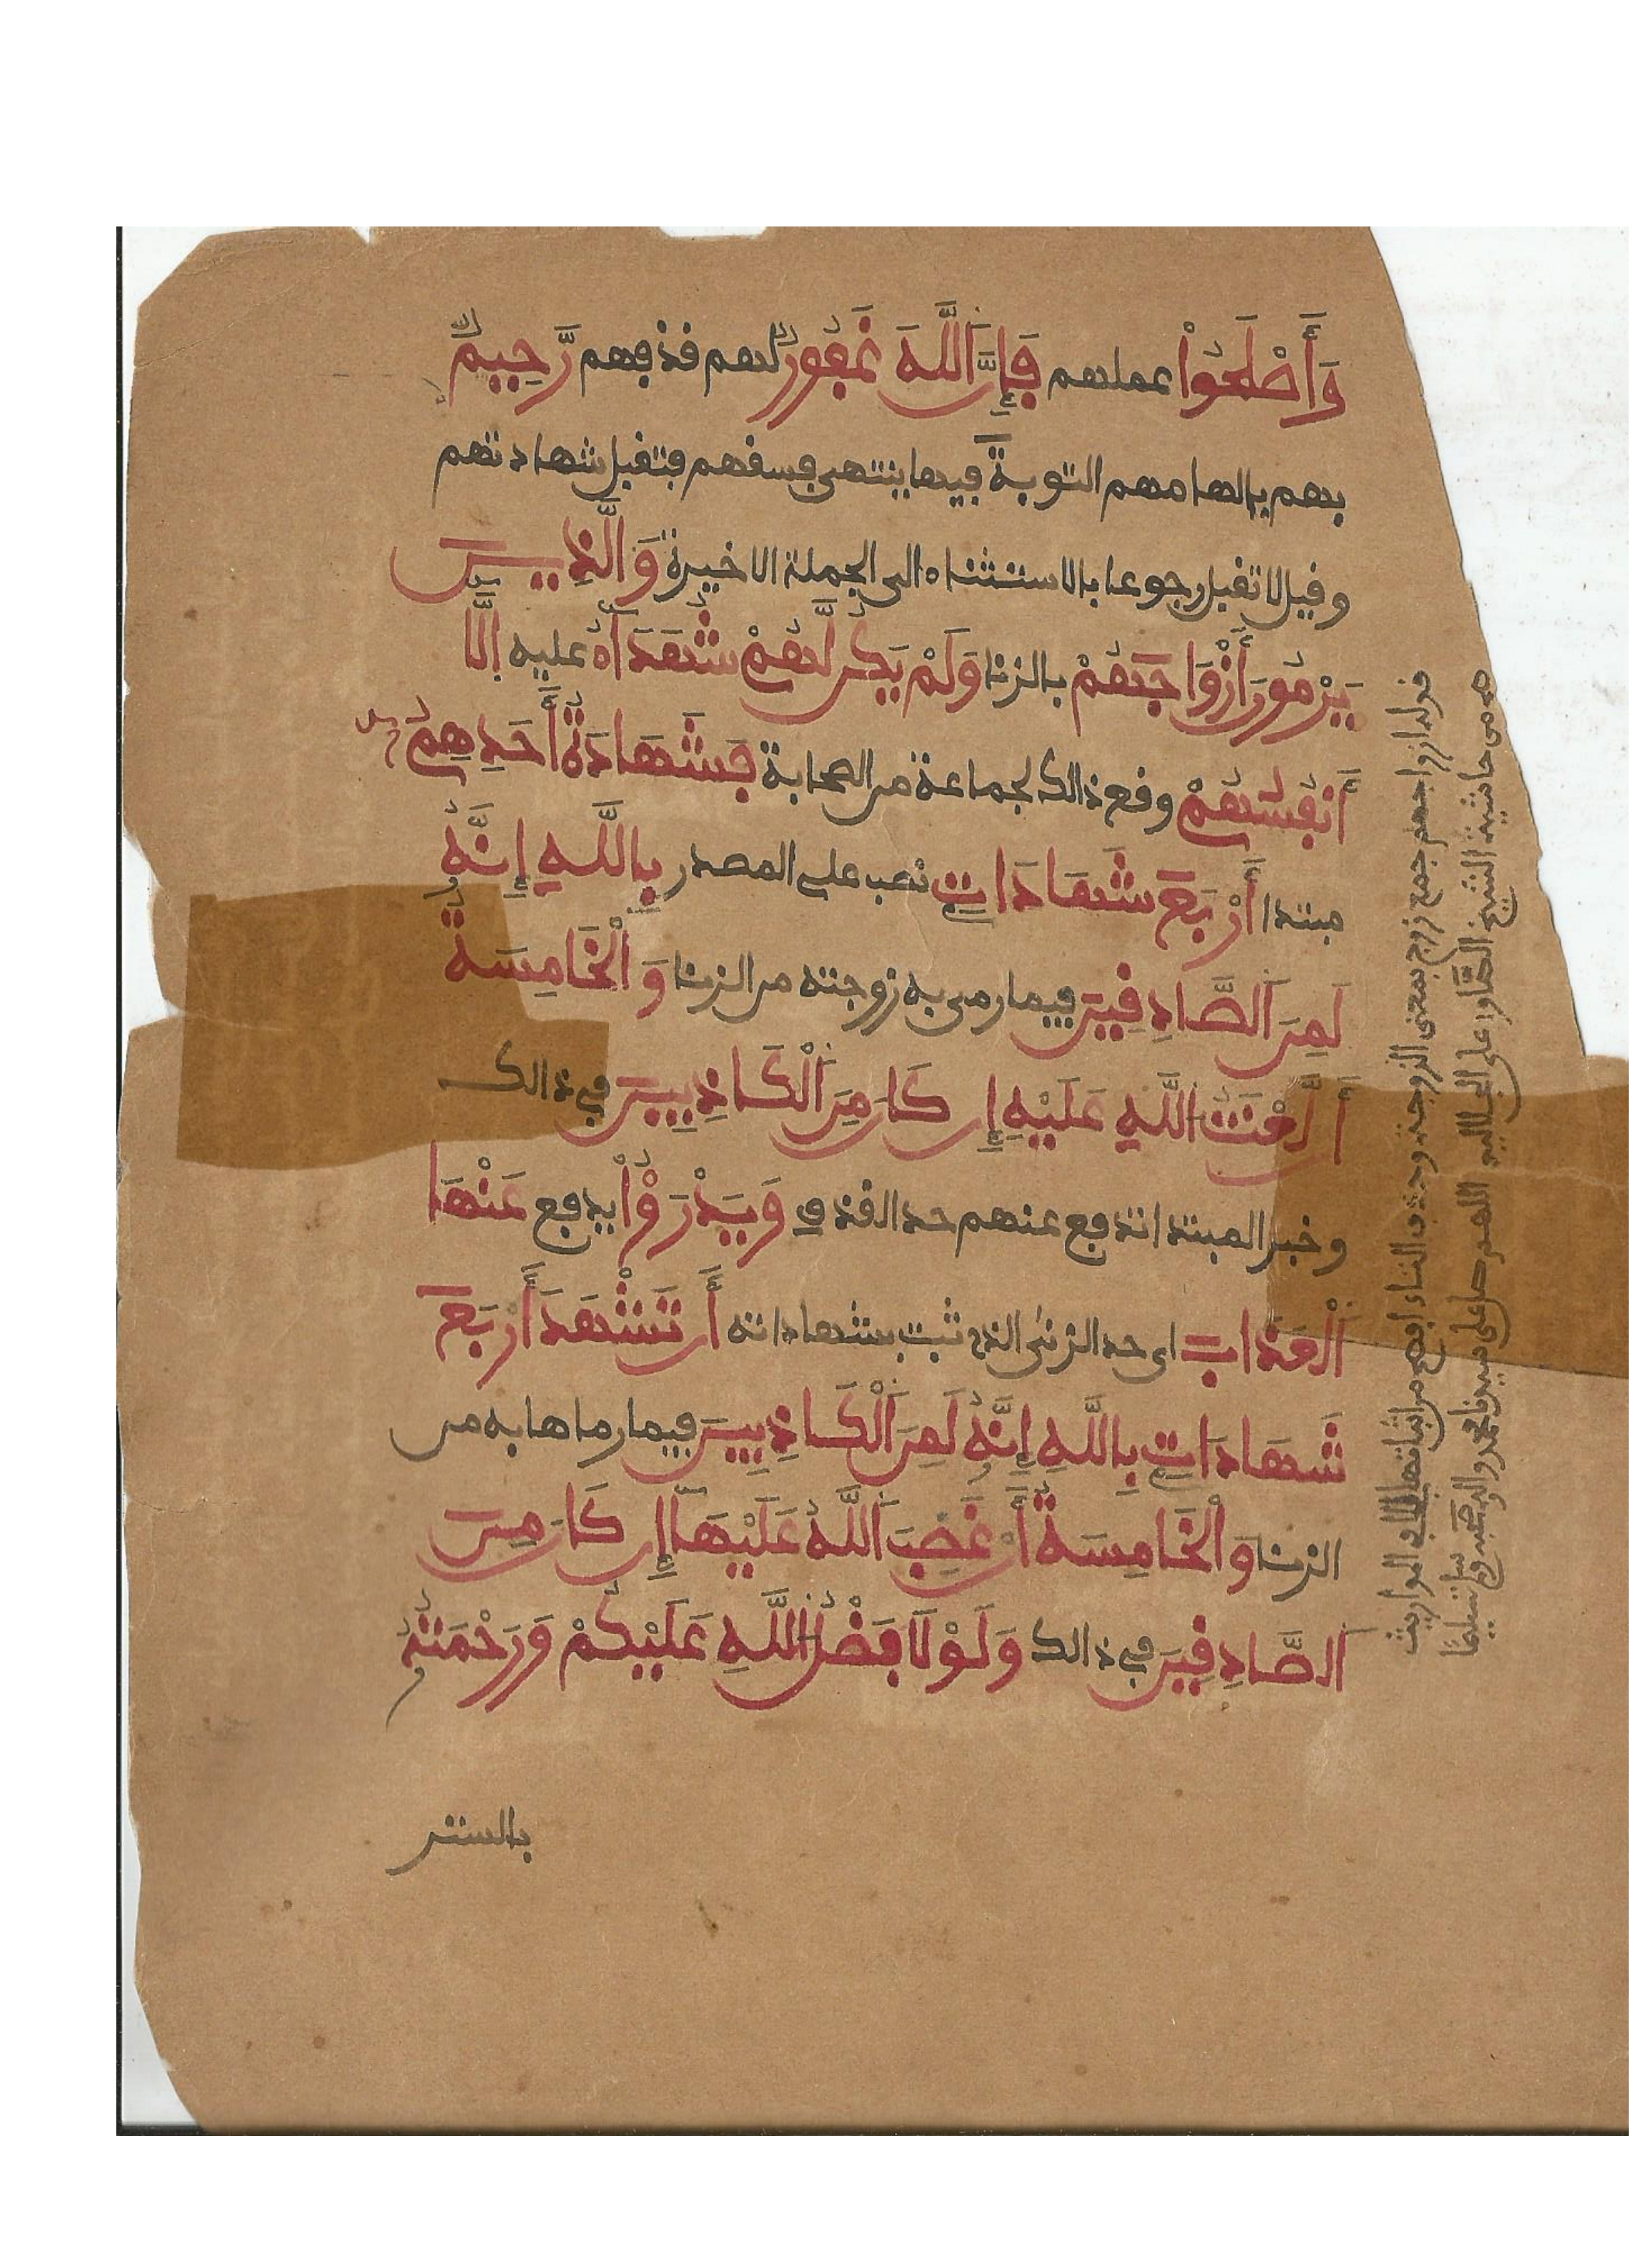 وَأَصْلَحُوا۟ عملهم فَإِنَّ اَللَّهَ غَفُورٌ لهم قذفهم رَّحِيمٌ
بهم بالهامهم التوبة فيها ينتهى فسقهم فتقبل شهادتهم
وقيل لا تقبل رجوعا بالاستثناء الى الجملة الاخيرة وَالَّذِينَ
يَرْمُونَ أَزْوَاجَهُمْ بالزنا وَلَمْ يَكُن لَّهُمْ شُهَدَآءُ عليه إِلَّا
أَنفُسُهُمْ وقع ذالك لجماعة من الصحابة فَشَهَادَةُ أَحَدِهِمُۥ
مبتدا أَرْبَعَ شَهَادَاتٍ نصب على المصدر بِاللَّهِ إِنَّهُۥ
لَمِنَ اَلصَّادِقِينَ فيما رمى به زوجته من الزنا وَالْخَامِسَةُ
أَن لَّعْنَتُ اَللَّهِ عَلَيْهِ إِن كَانَ مِنَ اَلْكَاذِبِينَ في ذالك
وخبر المبتدا تدفع عنهم حد القذف وَيَدْرَؤُا۟ يدفع عَنْهَا
اَلْعَذَابَ اى حد الزنى الذى ثبت بشهاداته أَن تَشْهَدَ أَرْبَعَ
شَهَادَاتٍ بِاللَّهِ إِنَّهُۥ لَمِنَ اَلْكَاذِبِينَ فيما رماها به من
الزنا وَالْخَامِسَةُ أَنْ غَضِبَ اَللَّهُ عَلَيْهَا إِن كَانَ مِنَ
اَلصَّادِقِينَ في ذالك وَلَوْلَا فَضْلُ اُللَّهِ عَلَيْكُمْ وَرَحْمَتُهُۥ
بالستر
قوله ازواجهم جمع زوج بمعنى الزوجة وحذف التاء افصح من اثباتها الا فى المواريث
هـ من حاشية الشيخ الصاو على الجلالين اللهم صل على سيدنا محمد وءاله وصحبه وسلم تسليما